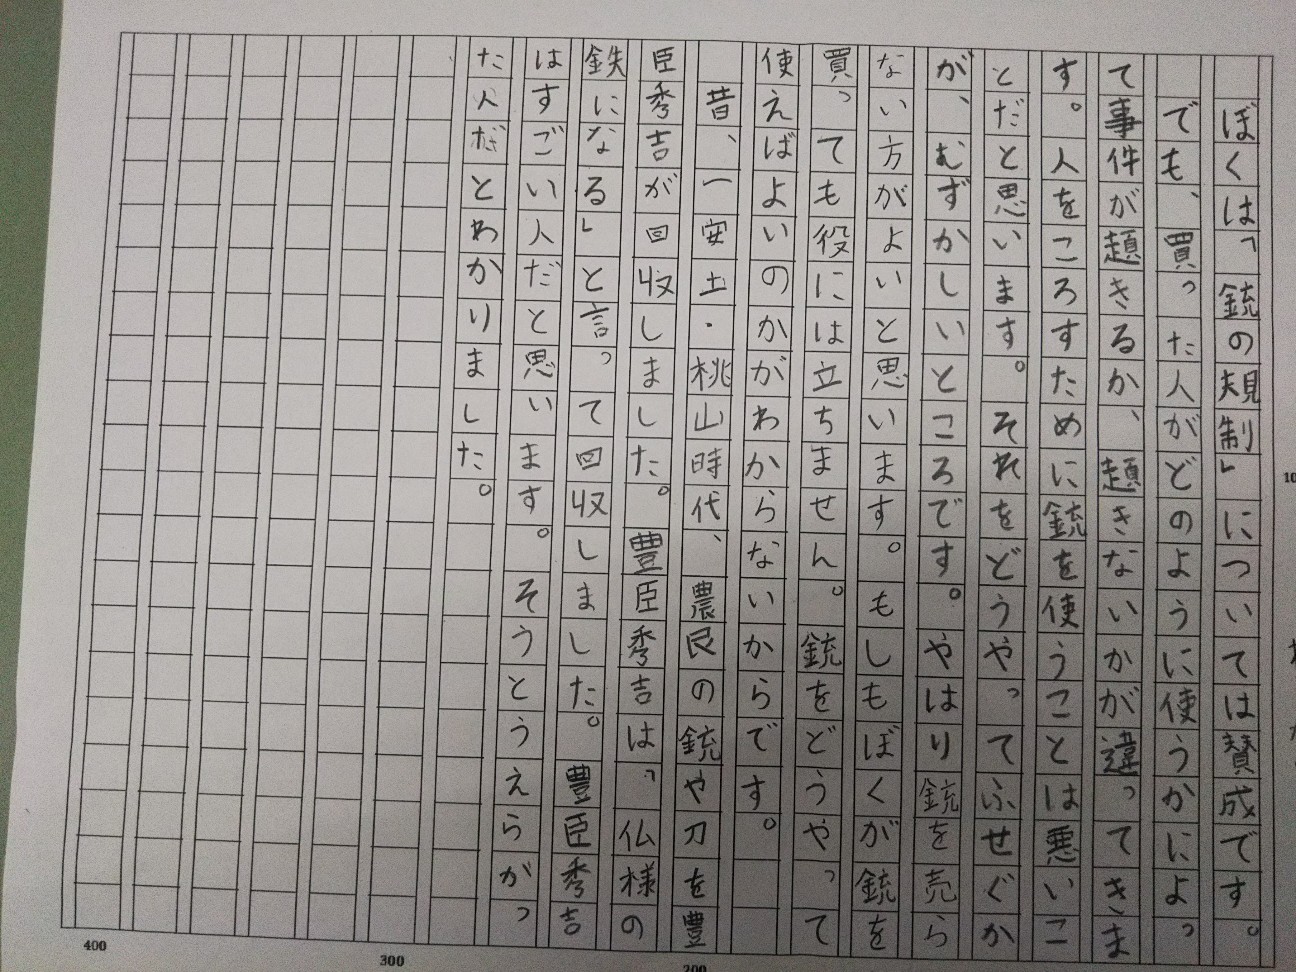 ぼくは、「銃の規制」については賛成です。
でも、買った人がどのように使うかによっ
て事件が趙きるか、趙きないかが違ってきま
す。人をころすために銃を使うことは悪いこ
とだと思います。それをどうやってふせぐか
が、むずかしいところです。やはり銃を売ら
ない方がよいと思います。もしもぼくが銃を
買っても役には立ちません。銃をどうやって
使えばよいのかがわからないからです。
昔、一安土・桃山時代、農民の銃や刀を豊
臣秀吉が回収しました。豊臣秀吉は、「仏様の
鉄になる」と言って回収しました。豊臣秀吉
はすごい人だと思います。そうとうえらがっ
た人だとわかりました。
10
200
300
400